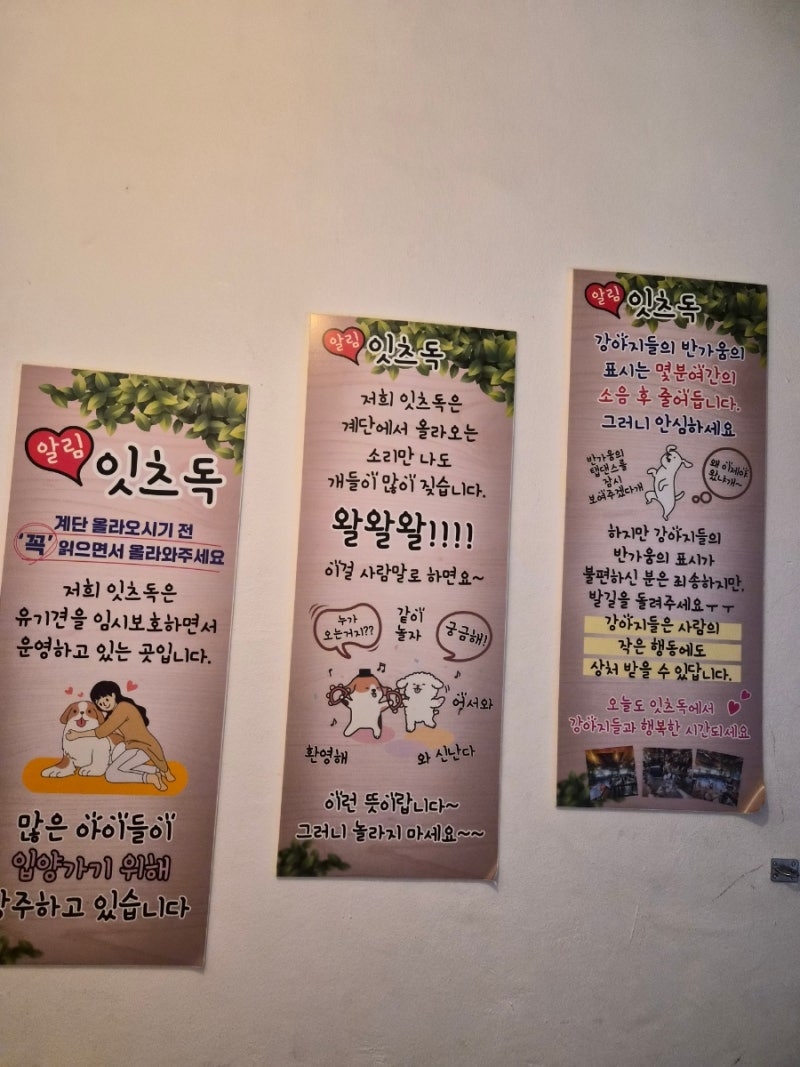 알림 잇츠독
계단 올라오시기 전
'꼭' 읽으면서 올라와주세요
저희 잇츠독은
유기견을 임시보호하면서
운영하고 있는 곳입니다.
많은 아이들이
입양가기 위해
상주하고 있습니다
알림 잇츠독
저희 잇츠독은
계단에서 올라오는
소리만 나도
개들이 많이 짖습니다.
왈왈왈!!!!
이걸 사람말로 하면요~
누가
오는거지??
같이
놀자
궁금해!
어서와
환영해
와 신난다
이런 뜻이랍니다~
그러니 놀라지 마세요~~
알림 잇츠독
강아지들의 반가움의
표시는 몇분여간의
소음 후 줄어듭니다.
그러니 안심하세요
반가움의
탭댄스를
잠시
보여주겠다개
왜 이제야
왔냐개~
하지만 강아지들의
반가움의 표시가
불편하신 분은 죄송하지만,
발길을 돌려주세요ㅜㅜ
강아지들은 사람의
작은 행동에도
상처 받을 수 있답니다.
오늘도 잇츠독에서
강아지들과 행복한 시간되세요